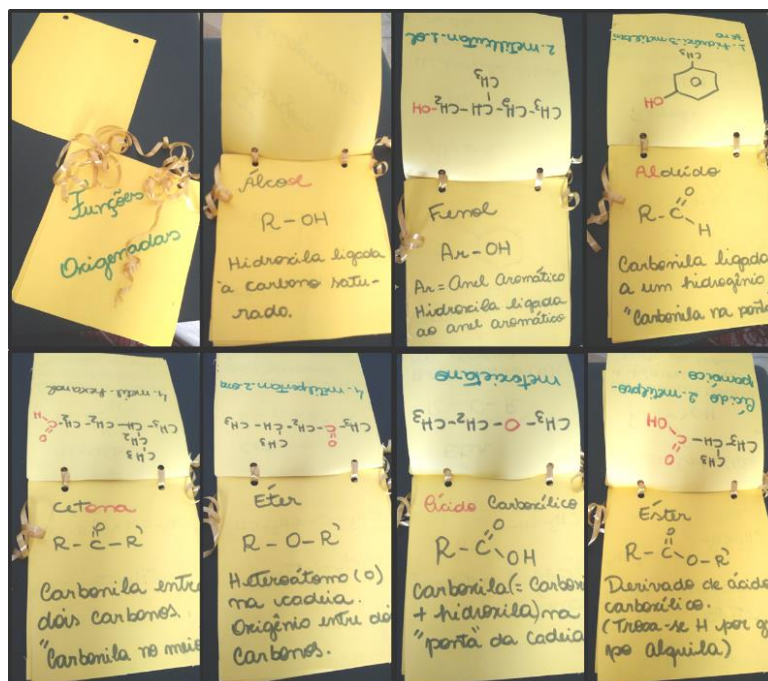 Funções
Oxigenadas
Álcool
R-OH
Hidroxila ligada
a carbono satu-
rado.
2-metilbutan-1-ol
CH₃-CH₂-CH-CH₂-OH
CH₃
Fenol
Ar-OH
Ar = Anel Aromático
Hidroxila ligada
ao anel aromático
CH₃
OH
Aldeído
O
R-C
H
Carbonila ligada
a um hidrogênio
"Carbonila na
4-metil-hexanal
CH₃-CH-CH₂-CH₂-C
O
H
CH₂
CH₃
Cetona
O
R-C-R'
Carbonila entre
dois carbonos.
"Carbonila no
4-metilpentan-2-ona
CH₃-C-CH₂-CH-CH₃
O
CH₃
Éter
R-O-R'
Heteroátomo (O)
na cadeia.
Oxigênio entre
carbonos.
metoxietano
CH₃-O-CH₂-CH₃
Ácido Carboxílico
O
R-C
OH
carboxila (=
+ hidroxila) na
"ponta" da cadeia
Ácido 2-metilpro-
panóico.
CH₃-CH-C
CH₃
O
OH
Éster
O
R-C
O-R'
Derivado de ácido
carboxílico.
(Troca-se H por
po alquila)